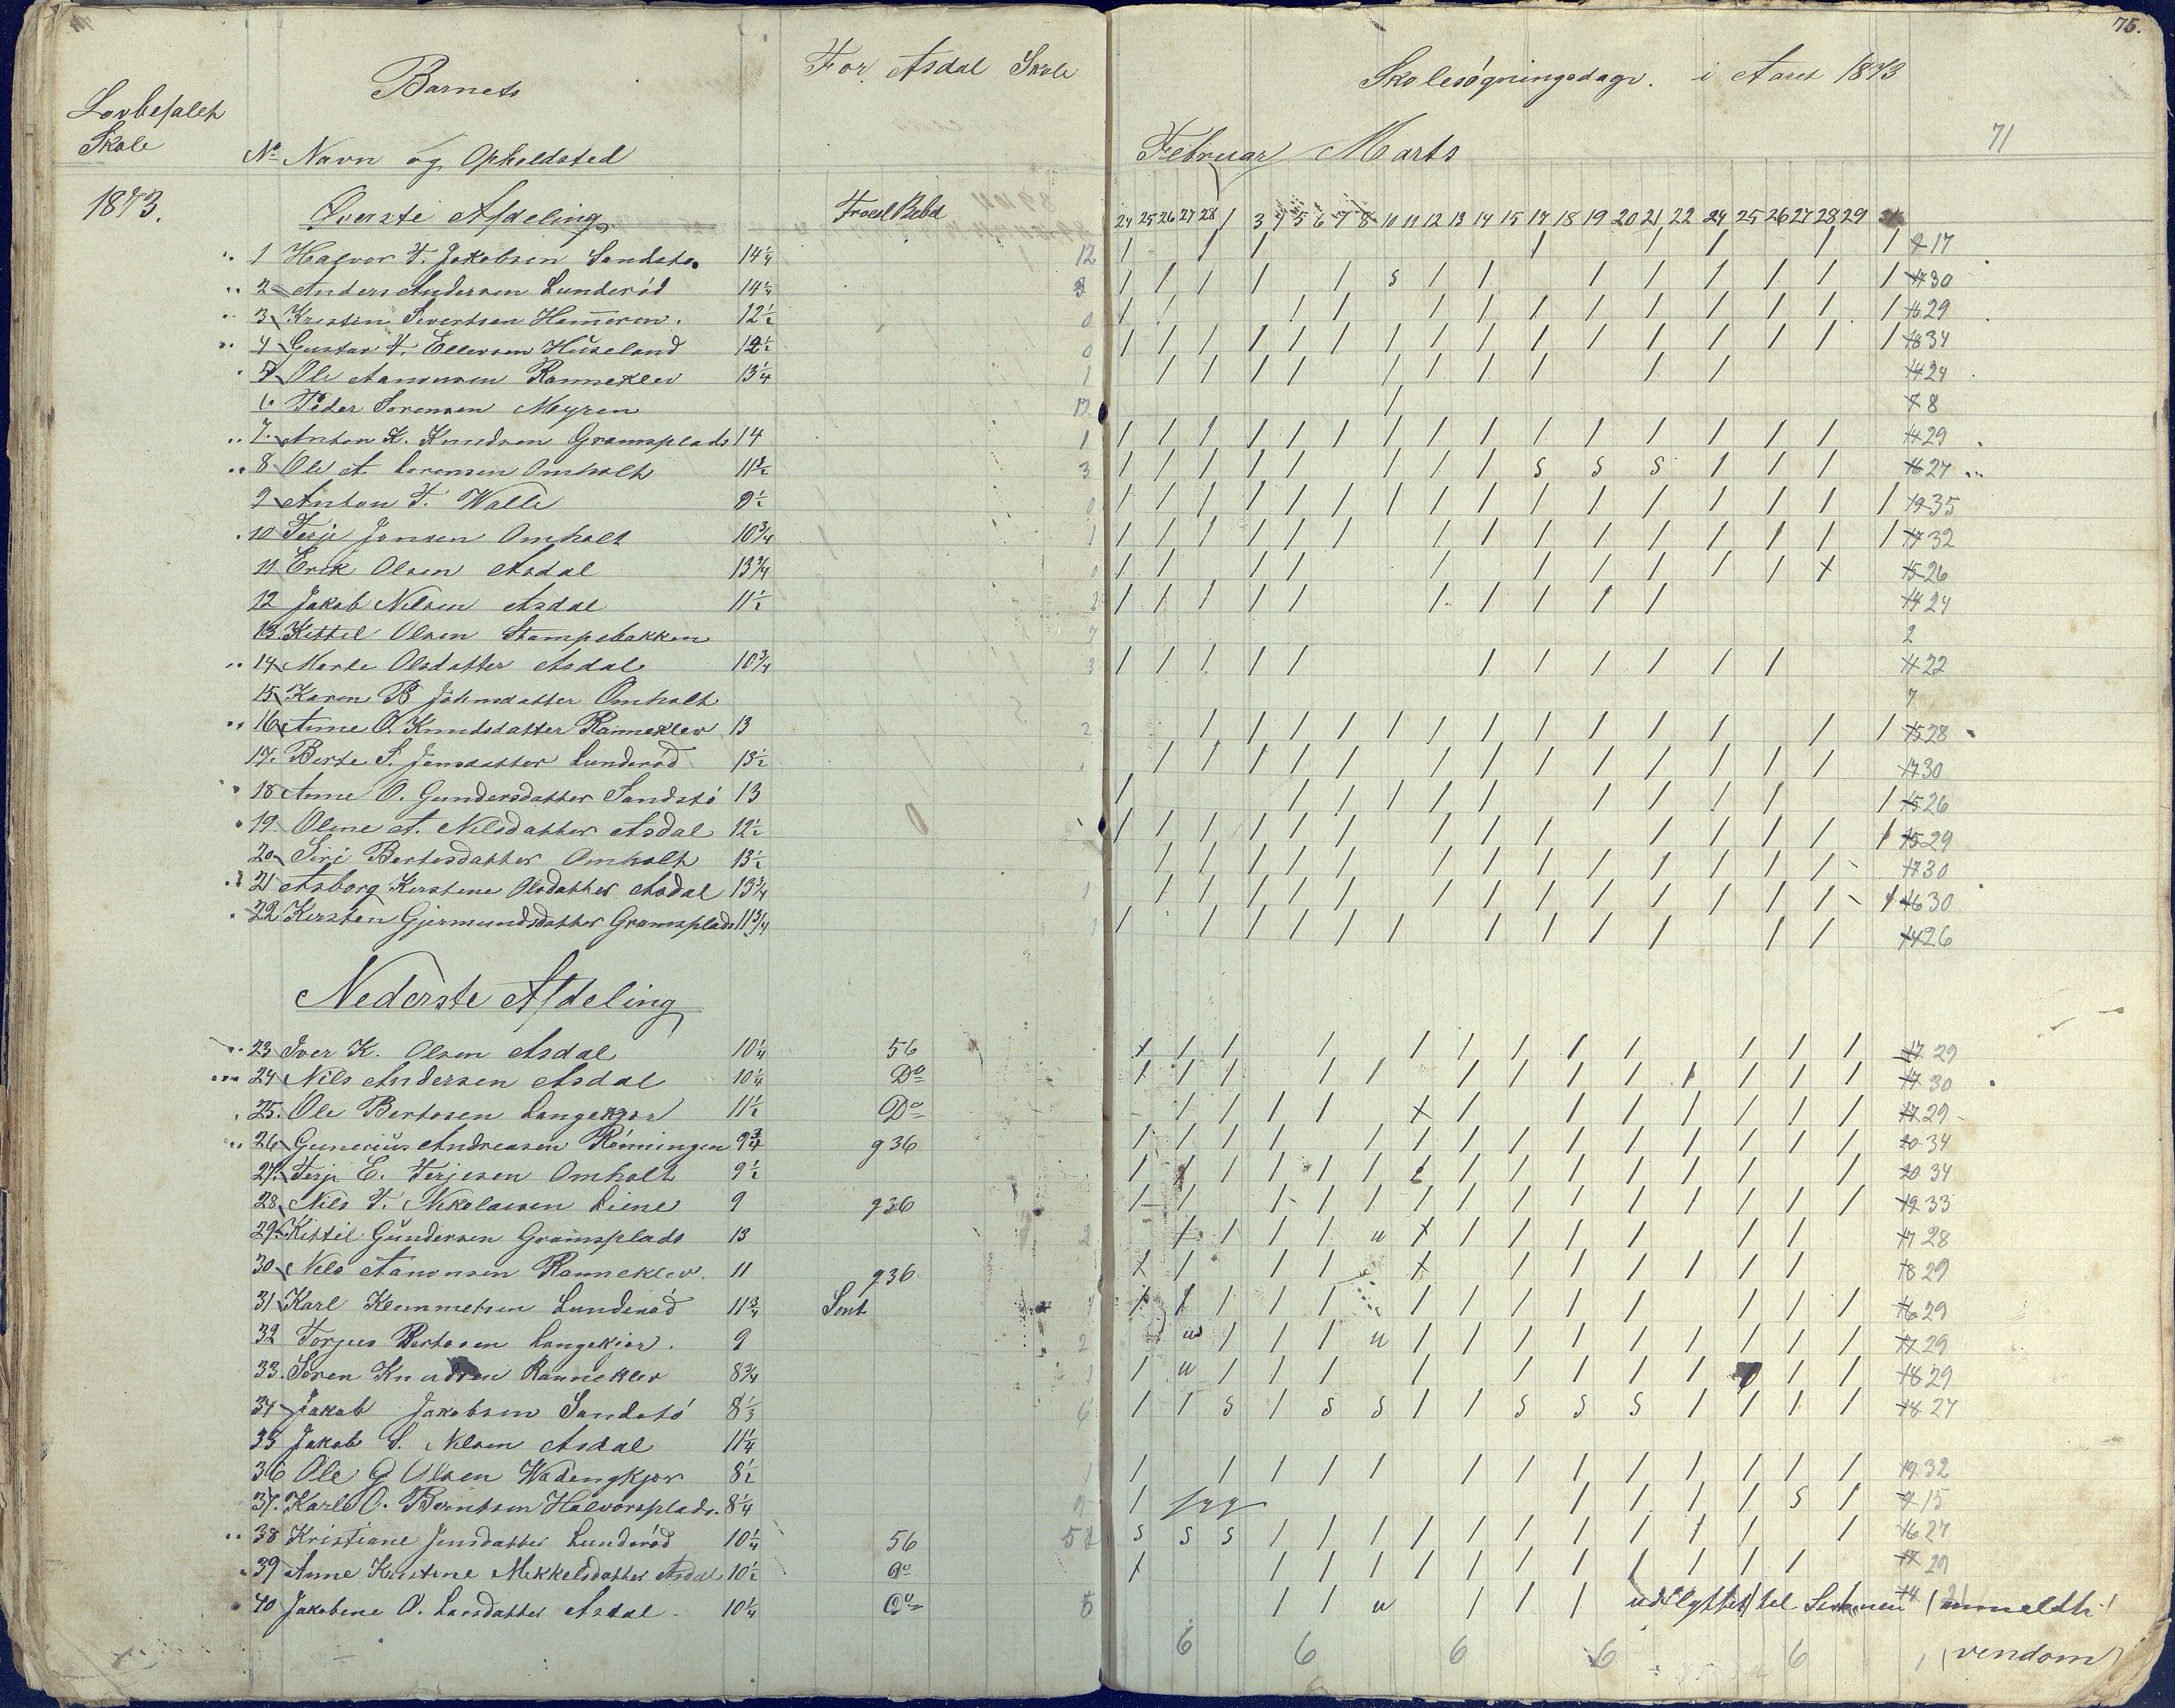 75.
For Asdal Skole Skolesøgningsdage. i Aaret 1873
Lovbefalet Skole
Barnets
No Navn og Opholdsted
Februar Marts 71
1873. Øverste Afdeling
24 25 26 27 28 1 3 4 5 6 7 8 10 11 12 13 14 15 17 18 19 20 21 22 24 25 26 27 28 29 31
1 Halvor T. Jakobsen Sandstø 14 1/4 12 / / / / / / / / 17
2 Anders Andersen Lunderød 14 1/4 3 / / / / / s / / / / / / / / / 30
3 Kristen Sivertsen 12 1/2 0 / / / / / / / / / / / / / / / 29
4 Gustav T. Ellevsen Huseland 12 1/2 0 / / / / / / / / / / / / / / / / / / 34
5 Ole Aanonsen Ranneklev 13 1/4 1 / / / / / / / / / / 24
6 Peder Sorensen Myren / 8
7. Anton K. Knudsen Gramsplads 14 1 / / / / / / / / / / / / / / / / / 29
8 Ole A Omholt 11 1/2 3 / / / / / / / / s s s / / / 27
9 Anton T. Walle 9 1/2 0 / / / / / / / / / / / / / / / / / / 35
10 Terje Jensen Omholt 10 3/4 1 / / / / / / / / / / / / / / / / 32
11 Erik Olsen Asdal 13 3/4 / / / / / / / / / / / x 26
12 Jakob Nilsen Asdal 11 1/2 2 / / / / / / / / / / 24
13. Kittil Olsen Stampebakken 7 2
14 Marte Olsdatter Asdal 10 3/4 3 / / / / / / / / / / / 22
15 Karen B Johnsdatter Omholt 7
16 Anne O. Knudsdatter Ranneklev 13 2 / / / / / / / / / / / / / / 28
17. Berte S. Jensdatter Lunderød 13 1/2 / / / / / / / / / / / / / / 30
18 Anne O. Gundersdatter Sandstø 13 / / / / / / / / / / / 26
19. Oline A. Nilsdatter Asdal 12 1/2 / / / / / / / / / / / / / / 29
20 Siri Bertesdatter Omholt 13 1/2 / / / / / / / / / / / / / / 30
21 Asborg Kirstene Olsdatter Asdal 13 3/4 1 / / / / / / / / / / / / / / 30
22 Kirsten Gjermundsdatter Gramsplads 11 3/4 1 / / / / / / / / / / / / / 26
Nederste Afdeling
23 Iver K. Olsen Asdal 10 1/4 56 x / / / / / / / / / / / 29
24 Nils Andersen Asdal 10 1/4 Do x / / / / / / / / / / / / / 30
25. Ole Bertosen Langekjær 11 1/2 Do / / / / x / / / / / / / 29
26 Gunerius Andreasen Rønningen 9 3/4 g36 / / / / / / / / / / / / / / / 34
27. Terje E. Terjesen Omholt 9 1/2 / / / / / / / / / / / / / / 34
28. Nils T. Nikolaisen Liene 9 g36 / / / / / / / / / / / / / / 33
29. Kittil Gundersen Gramsplads 13 2 x / / / u x / / / / / / 28
30 Nils Aanonsen Ranneklev 11 g36 x / / / x / / / / / / 29
31 Karl Klemmetsen Lunderød 11 3/4 / / / / / / / / / / / / / 29
32 Torjus Bertosen Langekjær. 9 2 u / / / u / / / / / / / / / 29
33. Søren Knudsen Ranneklev 8 3/4 / u / / / / / / / / / / 29
34 Jakob Jakobsen Sandstø 8 1/3 6 / / s / s s / / s s s / / / / 27
35 Jakob S. Nilsen Asdal 11 1/4
36 Ole G Olsen 8 1/2 / / / / / / / / / / / / / 32
37. Karl O. Berntsen Halvorsplads. 8 1/4 / / / / / s / 15
38 Kristiane Jensdatter Lunderød 10 1/4 56 s s s / / / / / / / / / / / / 27
39 Anne Kristine Mikkelsdatter Asdal 10 1/2 Do x / / / / / / / / / / / 29
40 Jakobine O. Larsdatter Asdal 10 1/4 Do 5 / / u / / / udflyttet til
6 6 6 6 6